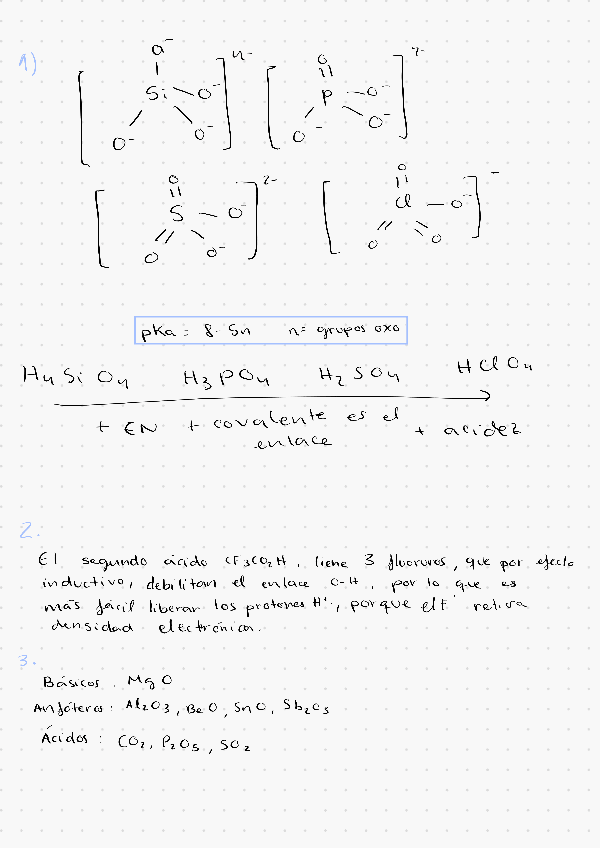 1)
[SiO⁻O⁻O⁻O⁻]⁴⁻ [O=P-O⁻O⁻O⁻]
[O=S=O-O⁻O⁻]²⁻ [O=Cl=O=O-O⁻]⁻
pKa = 8-5n n= grupos oxo
H4SiO4 H3PO4 H2SO4 HClO4
+ EN + covalente es el enlace + acidez
2.
El segundo ácido CF3CO2H, tiene 3 fluoruros, que por efecto
inductivo, debilitan el enlace O-H, por lo que es
más fácil liberar los protones H⁺, porque el F⁻ retira
densidad electrónica.
3.
Básicos. MgO
Anfóteros: Al2O3, BeO, SnO, Sb2O3
Ácidos: CO2, P2O5, SO2